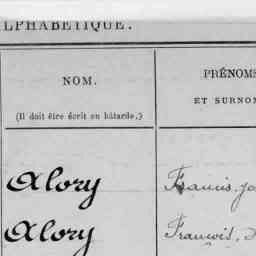 LPHABÉTIQUE.
NOM.
(Il doit être écrit en bâtarde.)
PRÉNOMS
ET SURNOM
Alory
Francis
Alory
François,